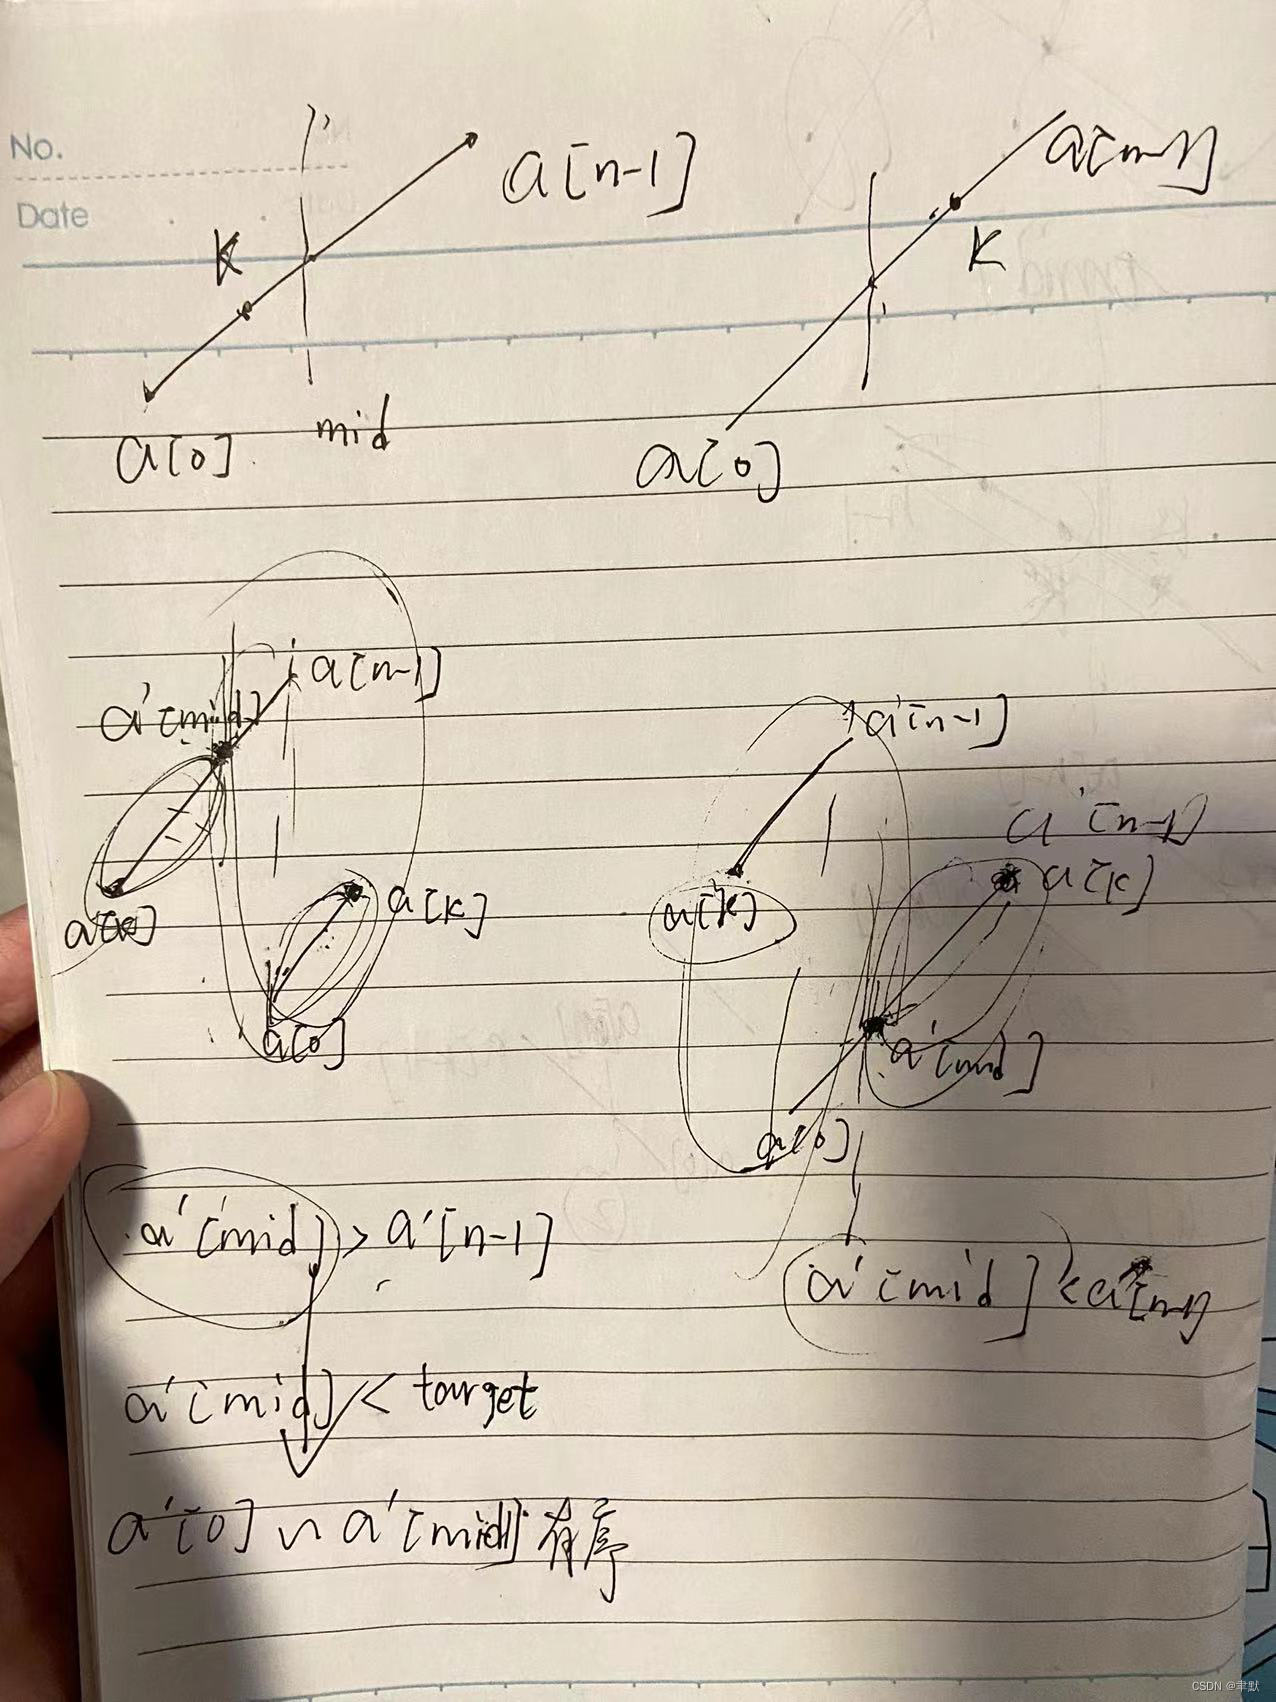 No.
Date
a[n-1]
K
a[0]
mid
a[n-1]
K
a[0]
a[n-1]
a'[mid]
a[k]
a[0]
a'[n-1]
a'[n-1]
a[k]
a[k]
a'[mid]
a[0]
a'[mid] > a'[n-1]
a'[mid] < a'[n-1]
a'[mid] < target
a'[0] ~ a'[mid] 有序
CSDN @聿默